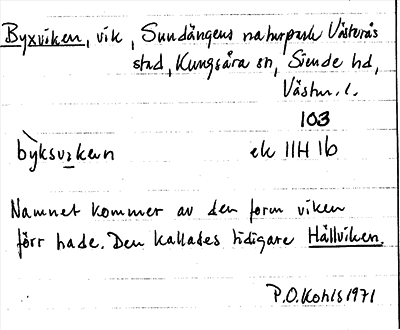 Byxviken, vik, Sundängens naturpark Västerås
stad, Kungsåra sn, Siende hd,
Västm. l.
103
bỳksviken
ek 11H 1b
Namnet kommer av den form viken
förr hade. Den kallades tidigare Hällviken.
P.O.Kohls 1971